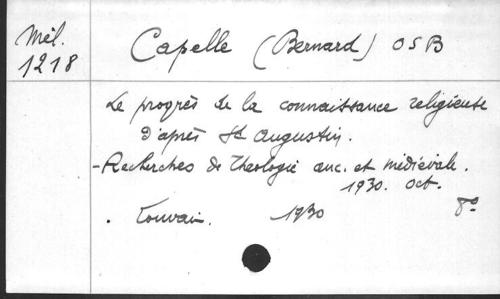 Mél.
1218
Capelle (Bernard) OSB
Le progrès de la connaissance religieuse
d'après St Augustin.
- Recherches de Théologie anc. et médiévale.
1930. oct.
. Louvain. 1930 8º